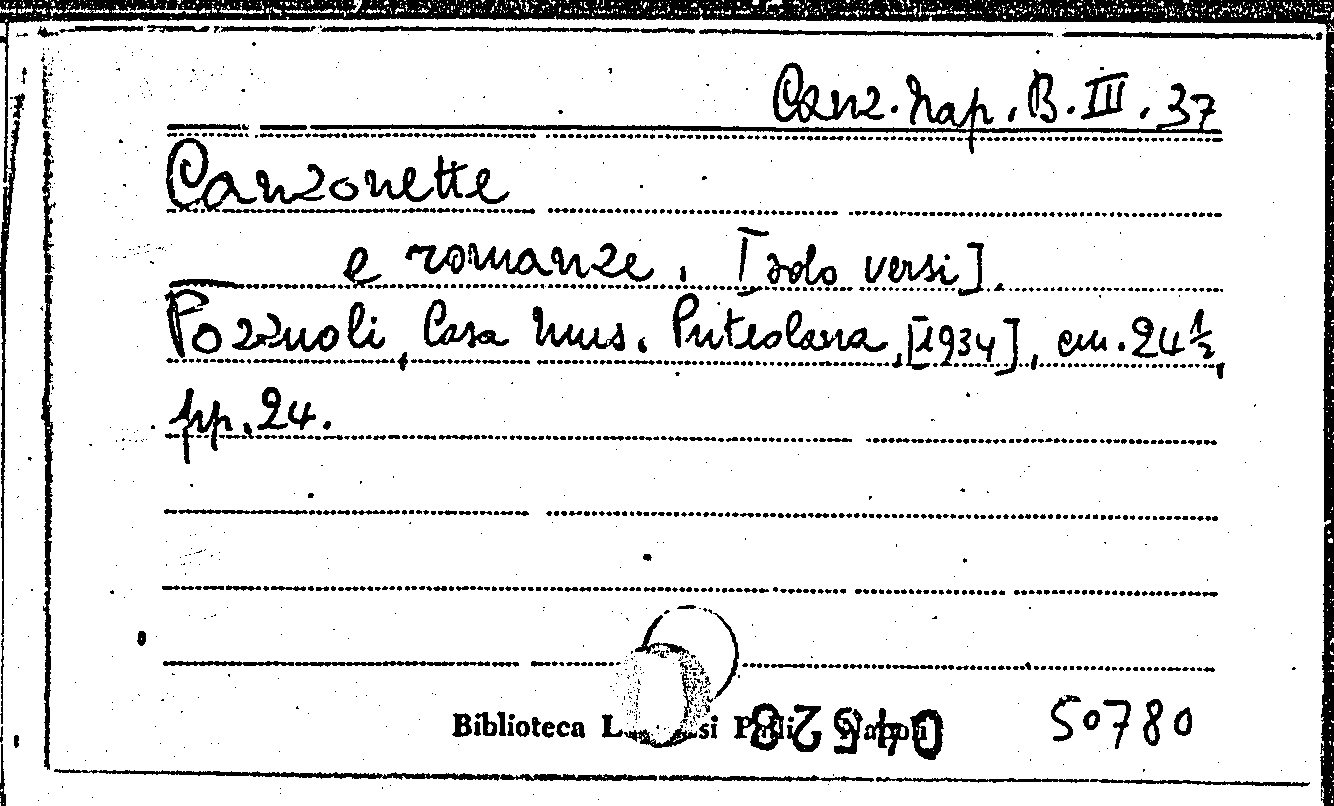 Canz. Nap. B. III. 37
Canzonette
e romanze. [solo versi].
Pozzuoli, Casa Mus. Puteolana, [1934], cm. 24½,
pp. 24.
Biblioteca Napoli
50780